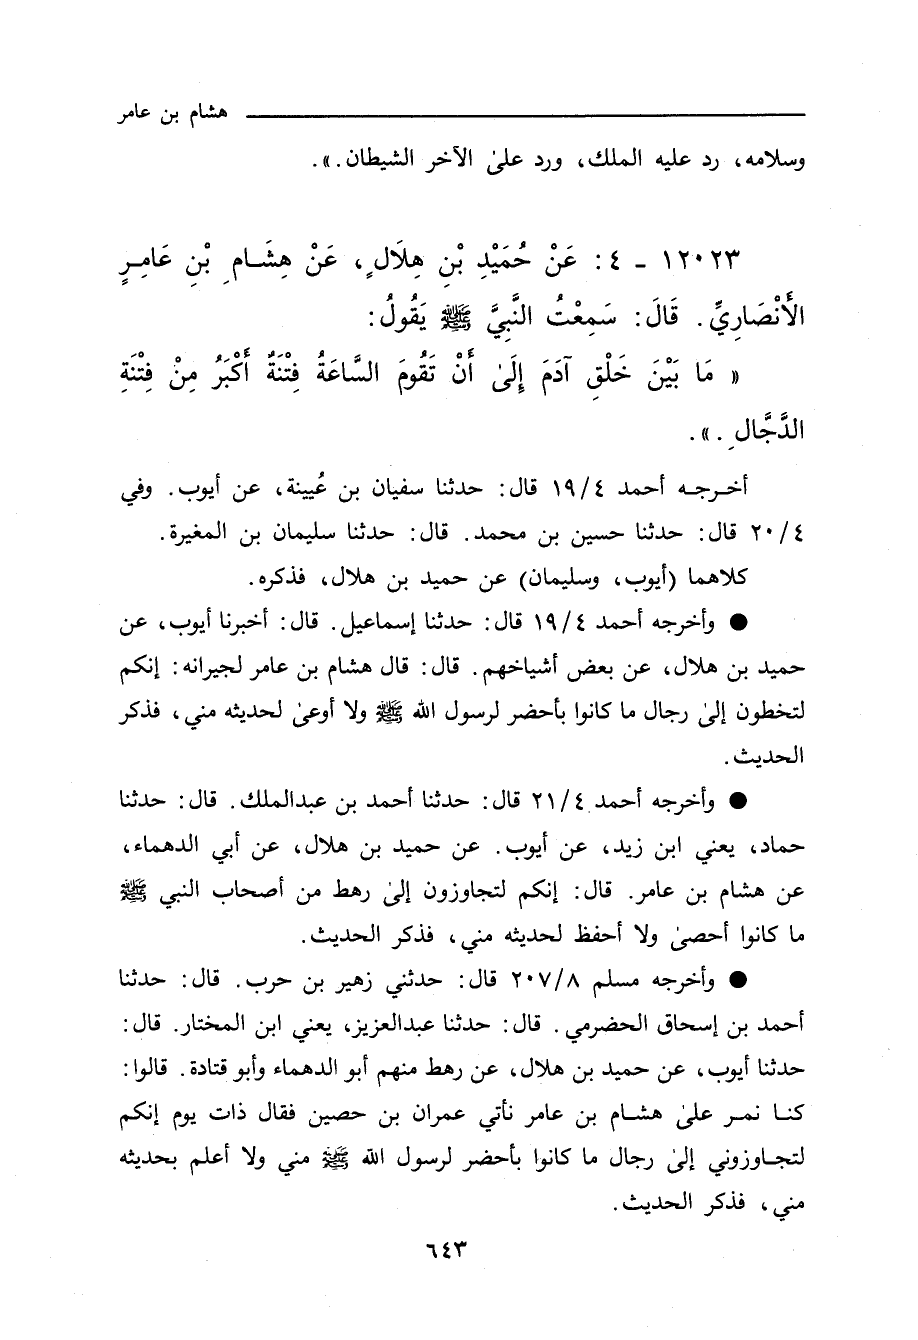 هشام بن عامر
وسلامه، رد عليه الملك، ورد علىٰ الآخر الشيطان.».
١٢٠٢٣ ـ ٤: عَنْ حُمَيْدِ بْنِ هِلَالٍ، عَنْ هِشَـامِ بْنِ عَامِـرٍ
الأَنْصَارِيِّ. قَالَ: سَمِعْتُ النَّبِيَّ ﷺ يَقُولُ:
« مَا بَيْنَ خَلْقِ آدَمَ إِلَىٰ أَنْ تَقُومَ السَّاعَةُ فِتْنَةٌ أَكْبَرُ مِنْ فِتْنَةِ
الدَّجَّالِ.».
أخـرجـه أحمد ٤/١٩ قال: حدثنا سفيان بن عُيينة، عن أيوب. وفي
٤/٢٠ قال: حدثنا حسين بن محمد. قال: حدثنا سليمان بن المغيرة.
كلاهما (أيوب، وسليمان) عن حميد بن هلال، فذكره.
● وأخرجه أحمد ٤/١٩ قال: حدثنا إسماعيل. قال: أخبرنا أيوب، عن
حميد بن هلال، عن بعض أشياخهم. قال: قال هشام بن عامر لجيرانه: إنكم
لتخطون إلىٰ رجال ما كانوا بأحضر لرسول الله ﷺ ولا أوعىٰ لحديثه مني، فذكر
الحديث.
● وأخرجه أحمد ٤/٢١ قال: حدثنا أحمد بن عبدالملك. قال: حدثنا
حماد، يعني ابن زيد، عن أيوب. عن حميد بن هلال، عن أبي الدهماء،
عن هشام بن عامر. قال: إنكم لتجاوزون إلىٰ رهط من أصحاب النبي ﷺ
ما كانوا أحصىٰ ولا أحفظ لحديثه مني، فذكر الحديث.
● وأخرجه مسلم ٨/٢٠٧ قال: حدثني زهير بن حرب. قال: حدثنا
أحمد بن إسحاق الحضرمي. قال: حدثنا عبدالعزيز، يعني ابن المختار. قال:
حدثنا أيوب، عن حميد بن هلال، عن رهط منهم أبو الدهماء وأبو قتادة. قالوا:
كنـا نمـر علىٰ هشـام بن عامر نأتي عمران بن حصين فقال ذات يوم إنكم
لتجـاوزوني إلىٰ رجال ما كانوا بأحضر لرسول الله ﷺ مني ولا أعلم بحديثه
مني، فذكر الحديث.
٦٤٣